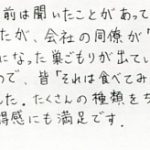 前は聞いたことがあって
たが、会社の同僚が「
になった巣ごもりが出てい
ので、皆「それは食べてみ
した。たくさんの種類をち
得感にも満足です。